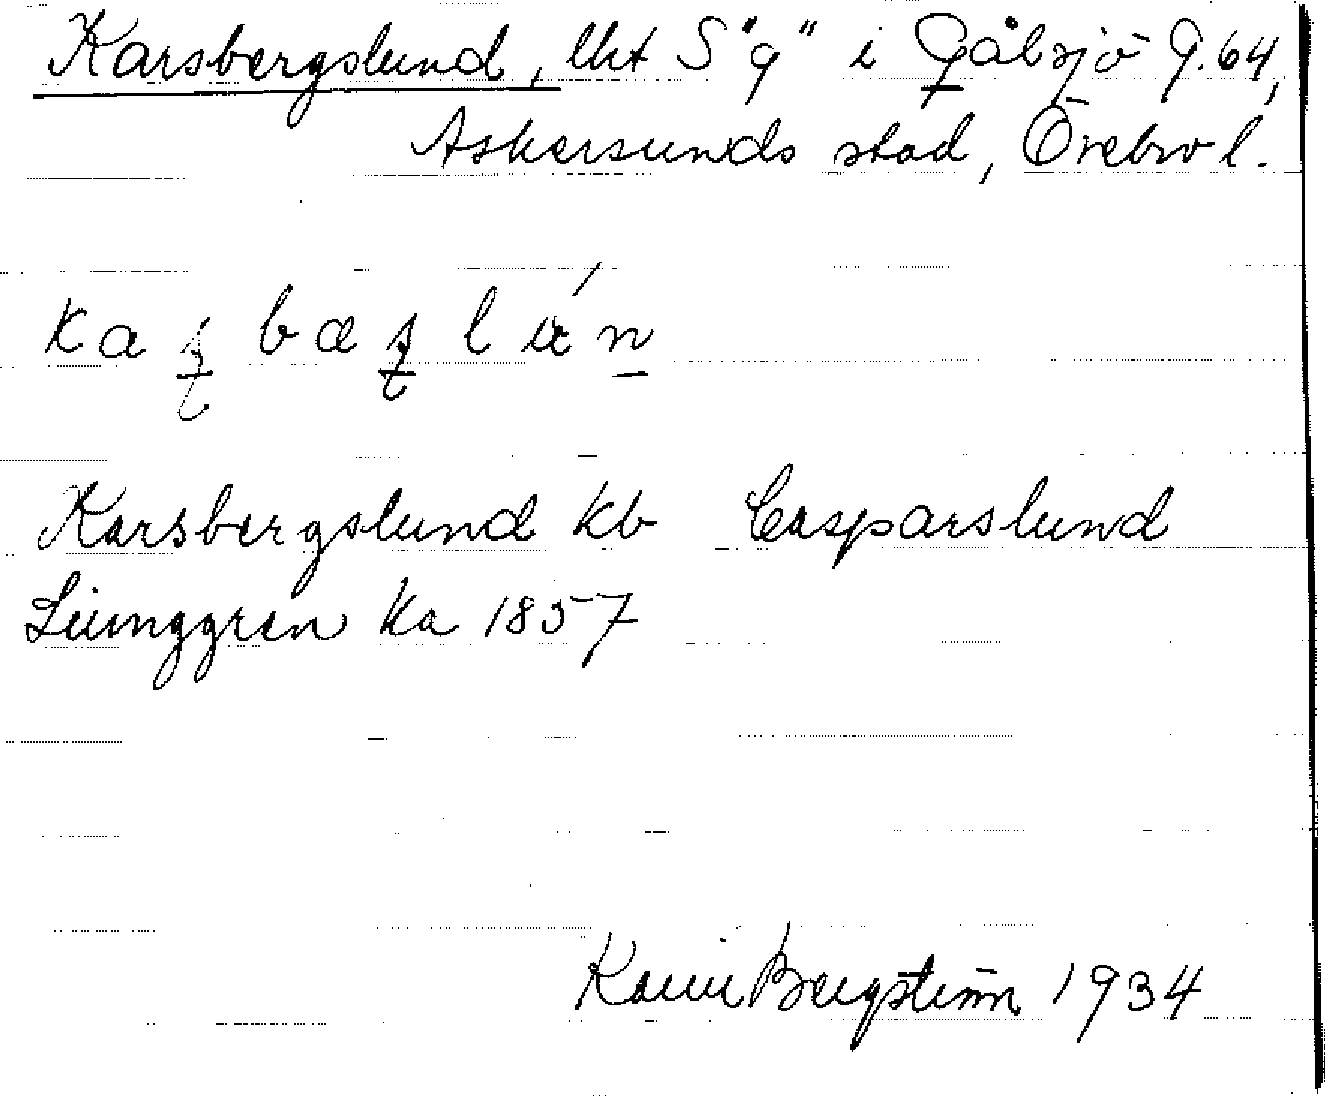 Karsbergslund, lht S "g" i Gålsjö G. 64,
Askersunds stad, Örebro l.
Karsbergslund kb Casparslund
Liunggren ka 1857
Karin Bergström 1934